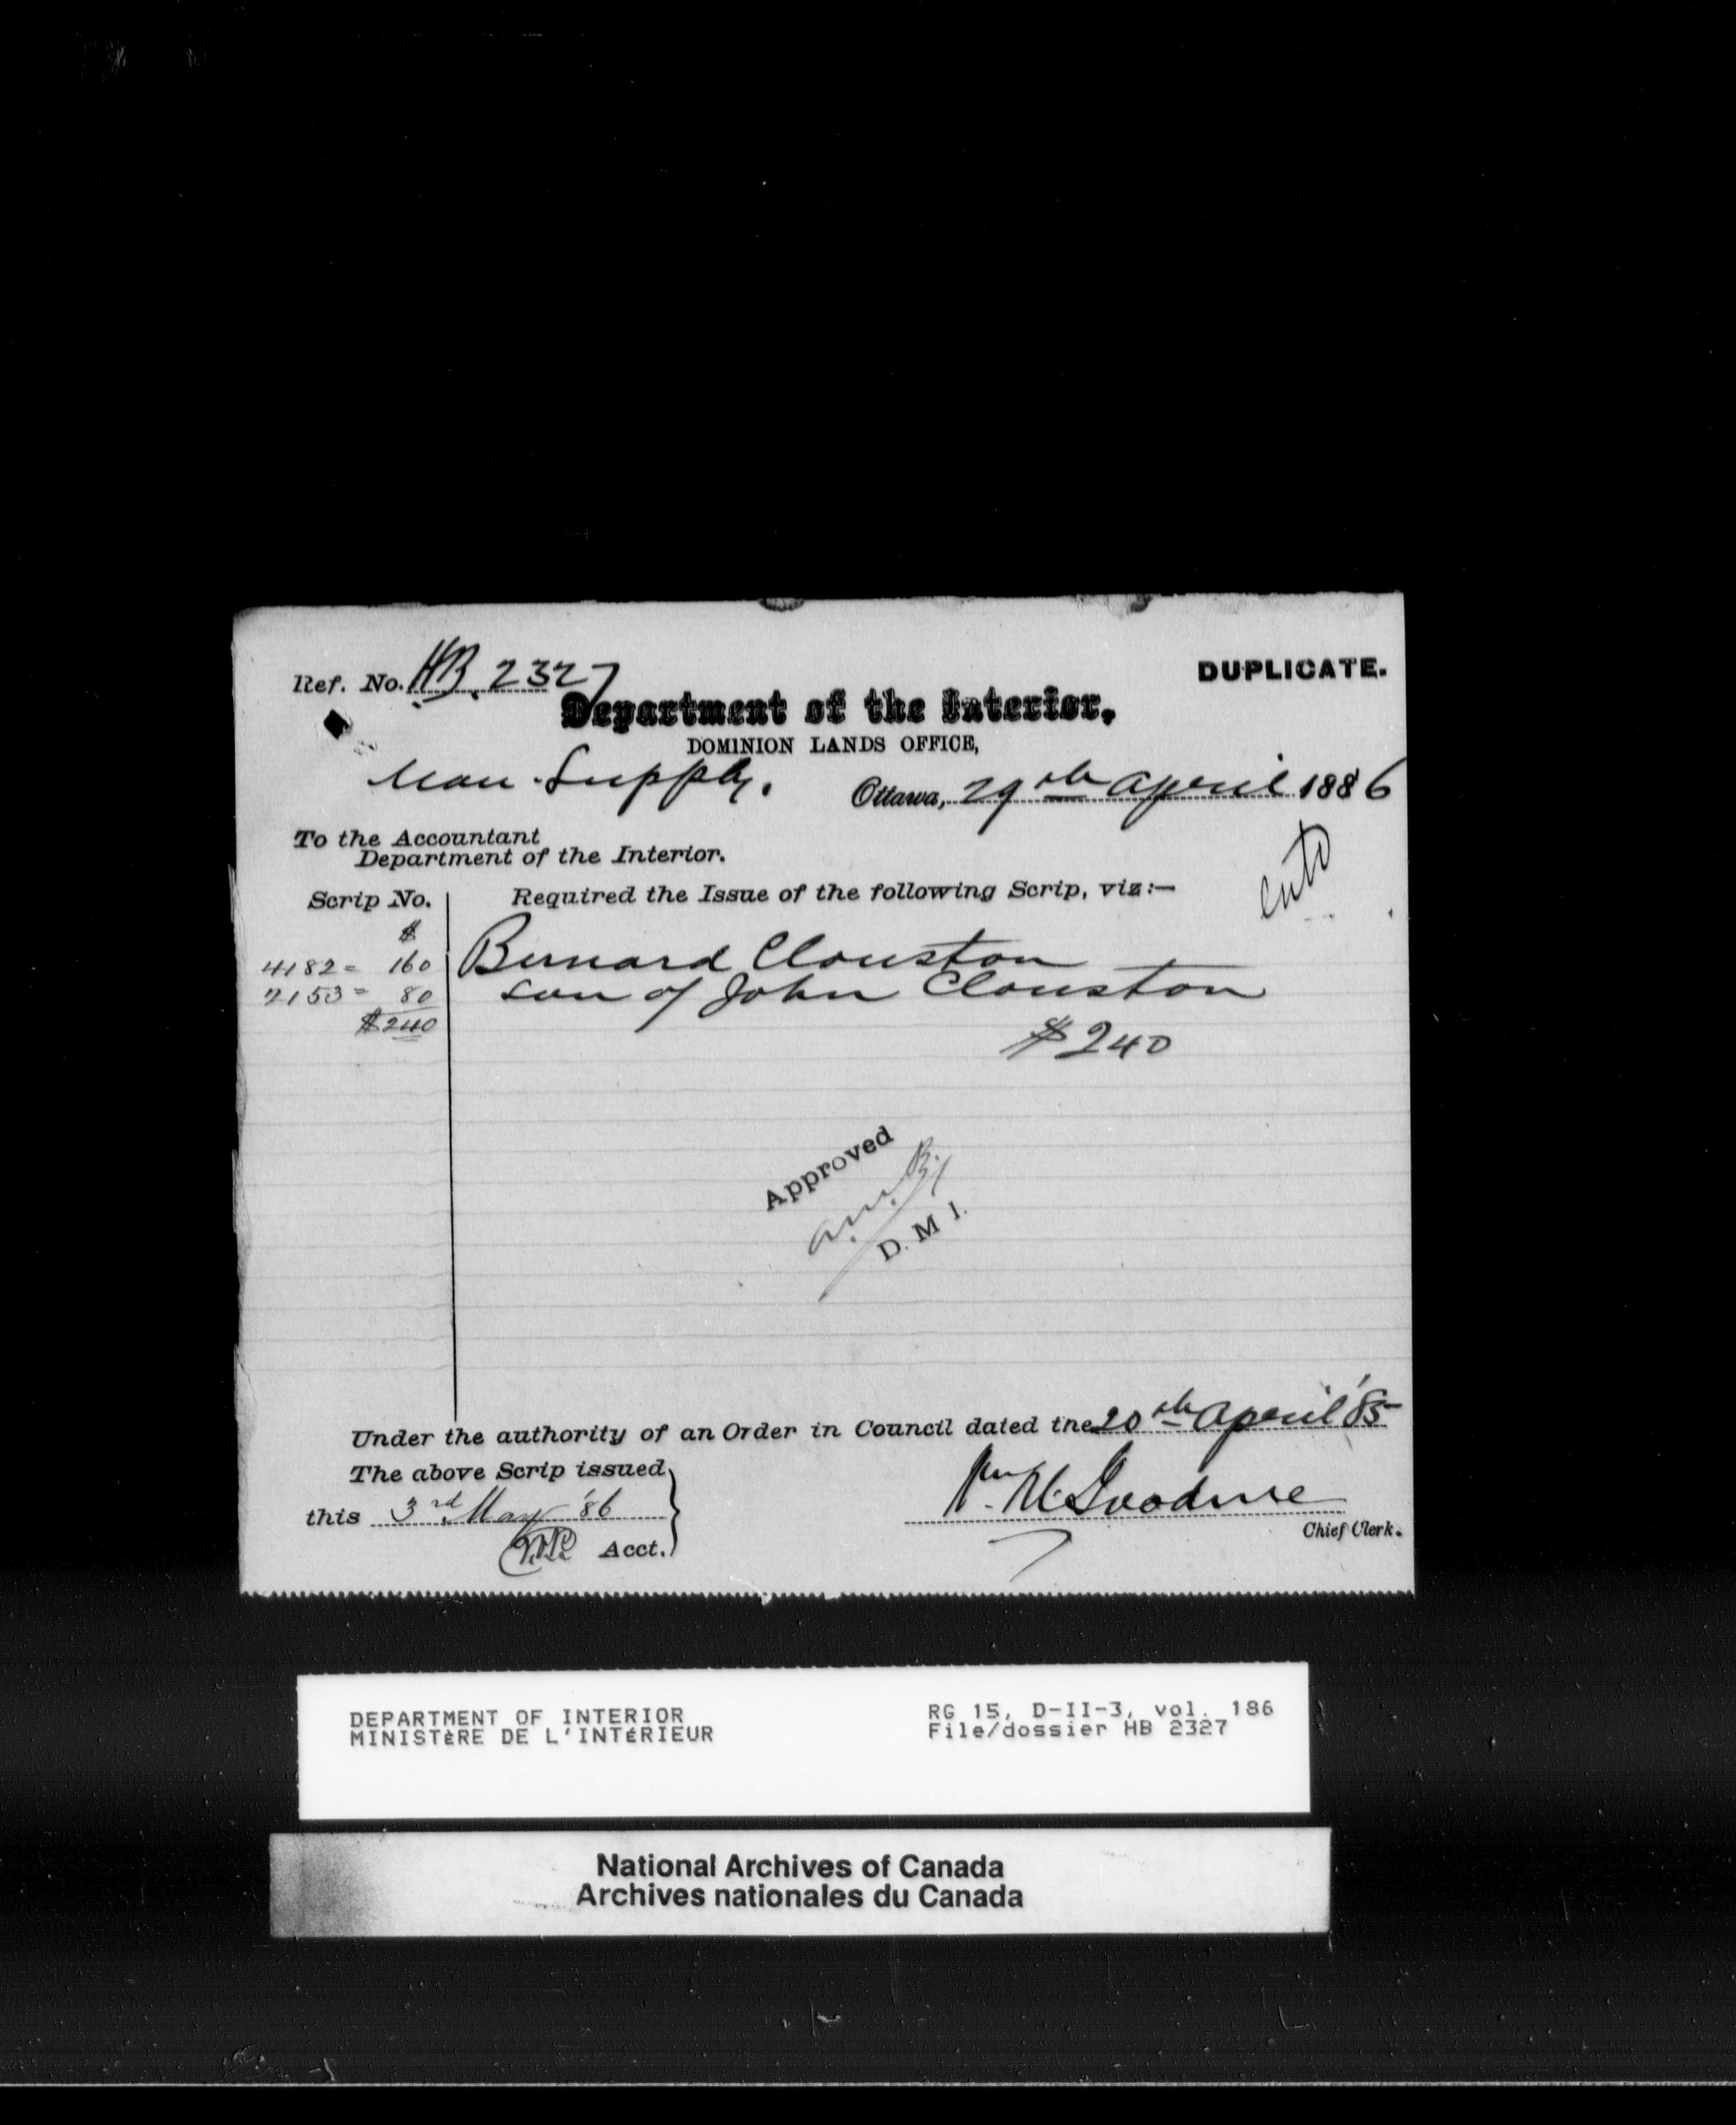 Ref. No. HB. 2327
DUPLICATE.
Department of the Interior,
DOMINION LANDS OFFICE,
Man. Supply.
Ottawa, 29th April 1886
To the Accountant
Department of the Interior.
Scrip No.
Required the Issue of the following Scrip, viz:—
$
4182 = 160
Bernard Clouston
2153 = 80
son of John Clouston
$240
$240
Approved
D. M. I.
Under the authority of an Order in Council dated the 20th April '85
The above Scrip issued
this 3rd May '86
Acct.
Chief Clerk.
DEPARTMENT OF INTERIOR
MINISTÈRE DE L'INTÉRIEUR
RG 15, D-II-3, vol. 186
File/dossier HB 2327
National Archives of Canada
Archives nationales du Canada